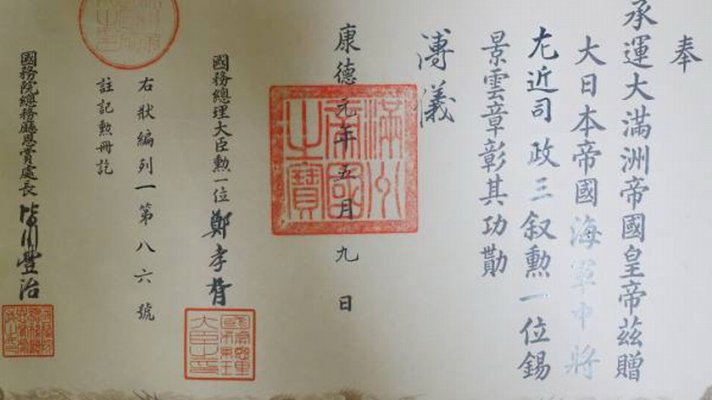 奉
承運大滿洲帝國皇帝茲贈
大日本帝國海軍中將
左近司政三叙勲一位錫
景雲章彰其功勛
溥儀
康德元年五月九日
滿洲帝國之寶
國務總理大臣勲一位鄭孝胥
右狀編列一第八六號
註記勲冊訖
國務院總務廳恩賞處長皆川豐治